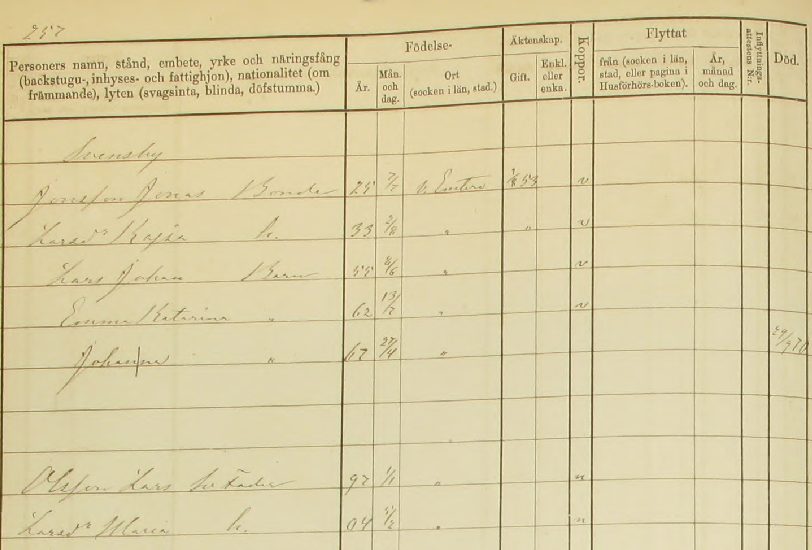 257
Personers namn, stånd, embete, yrke och näringsfång
(backstugu-, inhyses- och fattighjon), nationalitet (om
främmande), lyten (svagsinta, blinda, döfstumma.)
Födelse-
År.
Mån. och dag.
Ort
(socken i län, stad.)
Äktenskap.
Gift.
Enkl. eller enka.
Koppor.
Flyttat
från (socken i län, stad, eller pagina i Husförhörs-boken).
År, månad och dag.
Inflyttnings-attestens N:r.
Död.
Svensby
Jonsson Jonas Bonde 25 N. Emtervi 53 v
Larsdr Kajsa h. 33 2/8 " " v
Lars Johan Barn 55 " v
Emma Katarina " 62 " v
Johanna " 67 27/4 " 29/9 70
Olsson Lars Sv. Fader 97 1/1 " n
Larsdr Maria h. 04 " n